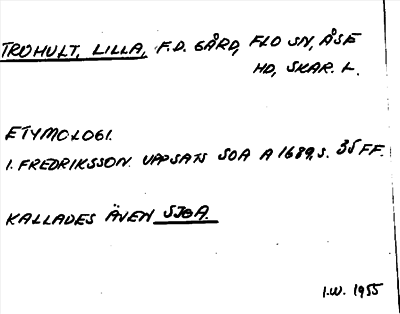 TROHULT, LILLA, F.D. GÅRD, FLO SN, ÅSE
HD, SKAR. L.
ETYMOLOGI.
I. FREDRIKSSON. UPPSATS SOA A 1689, S. 35 FF.
KALLADES ÄVEN SJÖA.
I.W. 1955